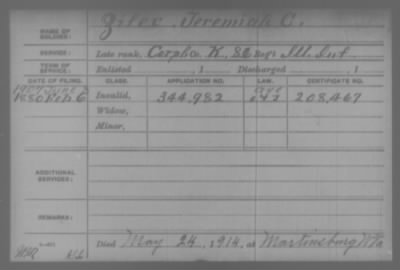 NAME OF SOLDIER: Giles, Jeremiah C.
SERVICE: Late rank, Corpl Co. K, Reg't Ill. Inf
TERM OF SERVICE: Enlisted , 1 Discharged , 1
DATE OF FILING. CLASS. APPLICATION NO. LAW. CERTIFICATE NO.
1880 Feb 6 Invalid, 344,982 208,467
Widow,
Minor,
ADDITIONAL SERVICES:
REMARKS:
Died May 24, 1914, at Martinsburg